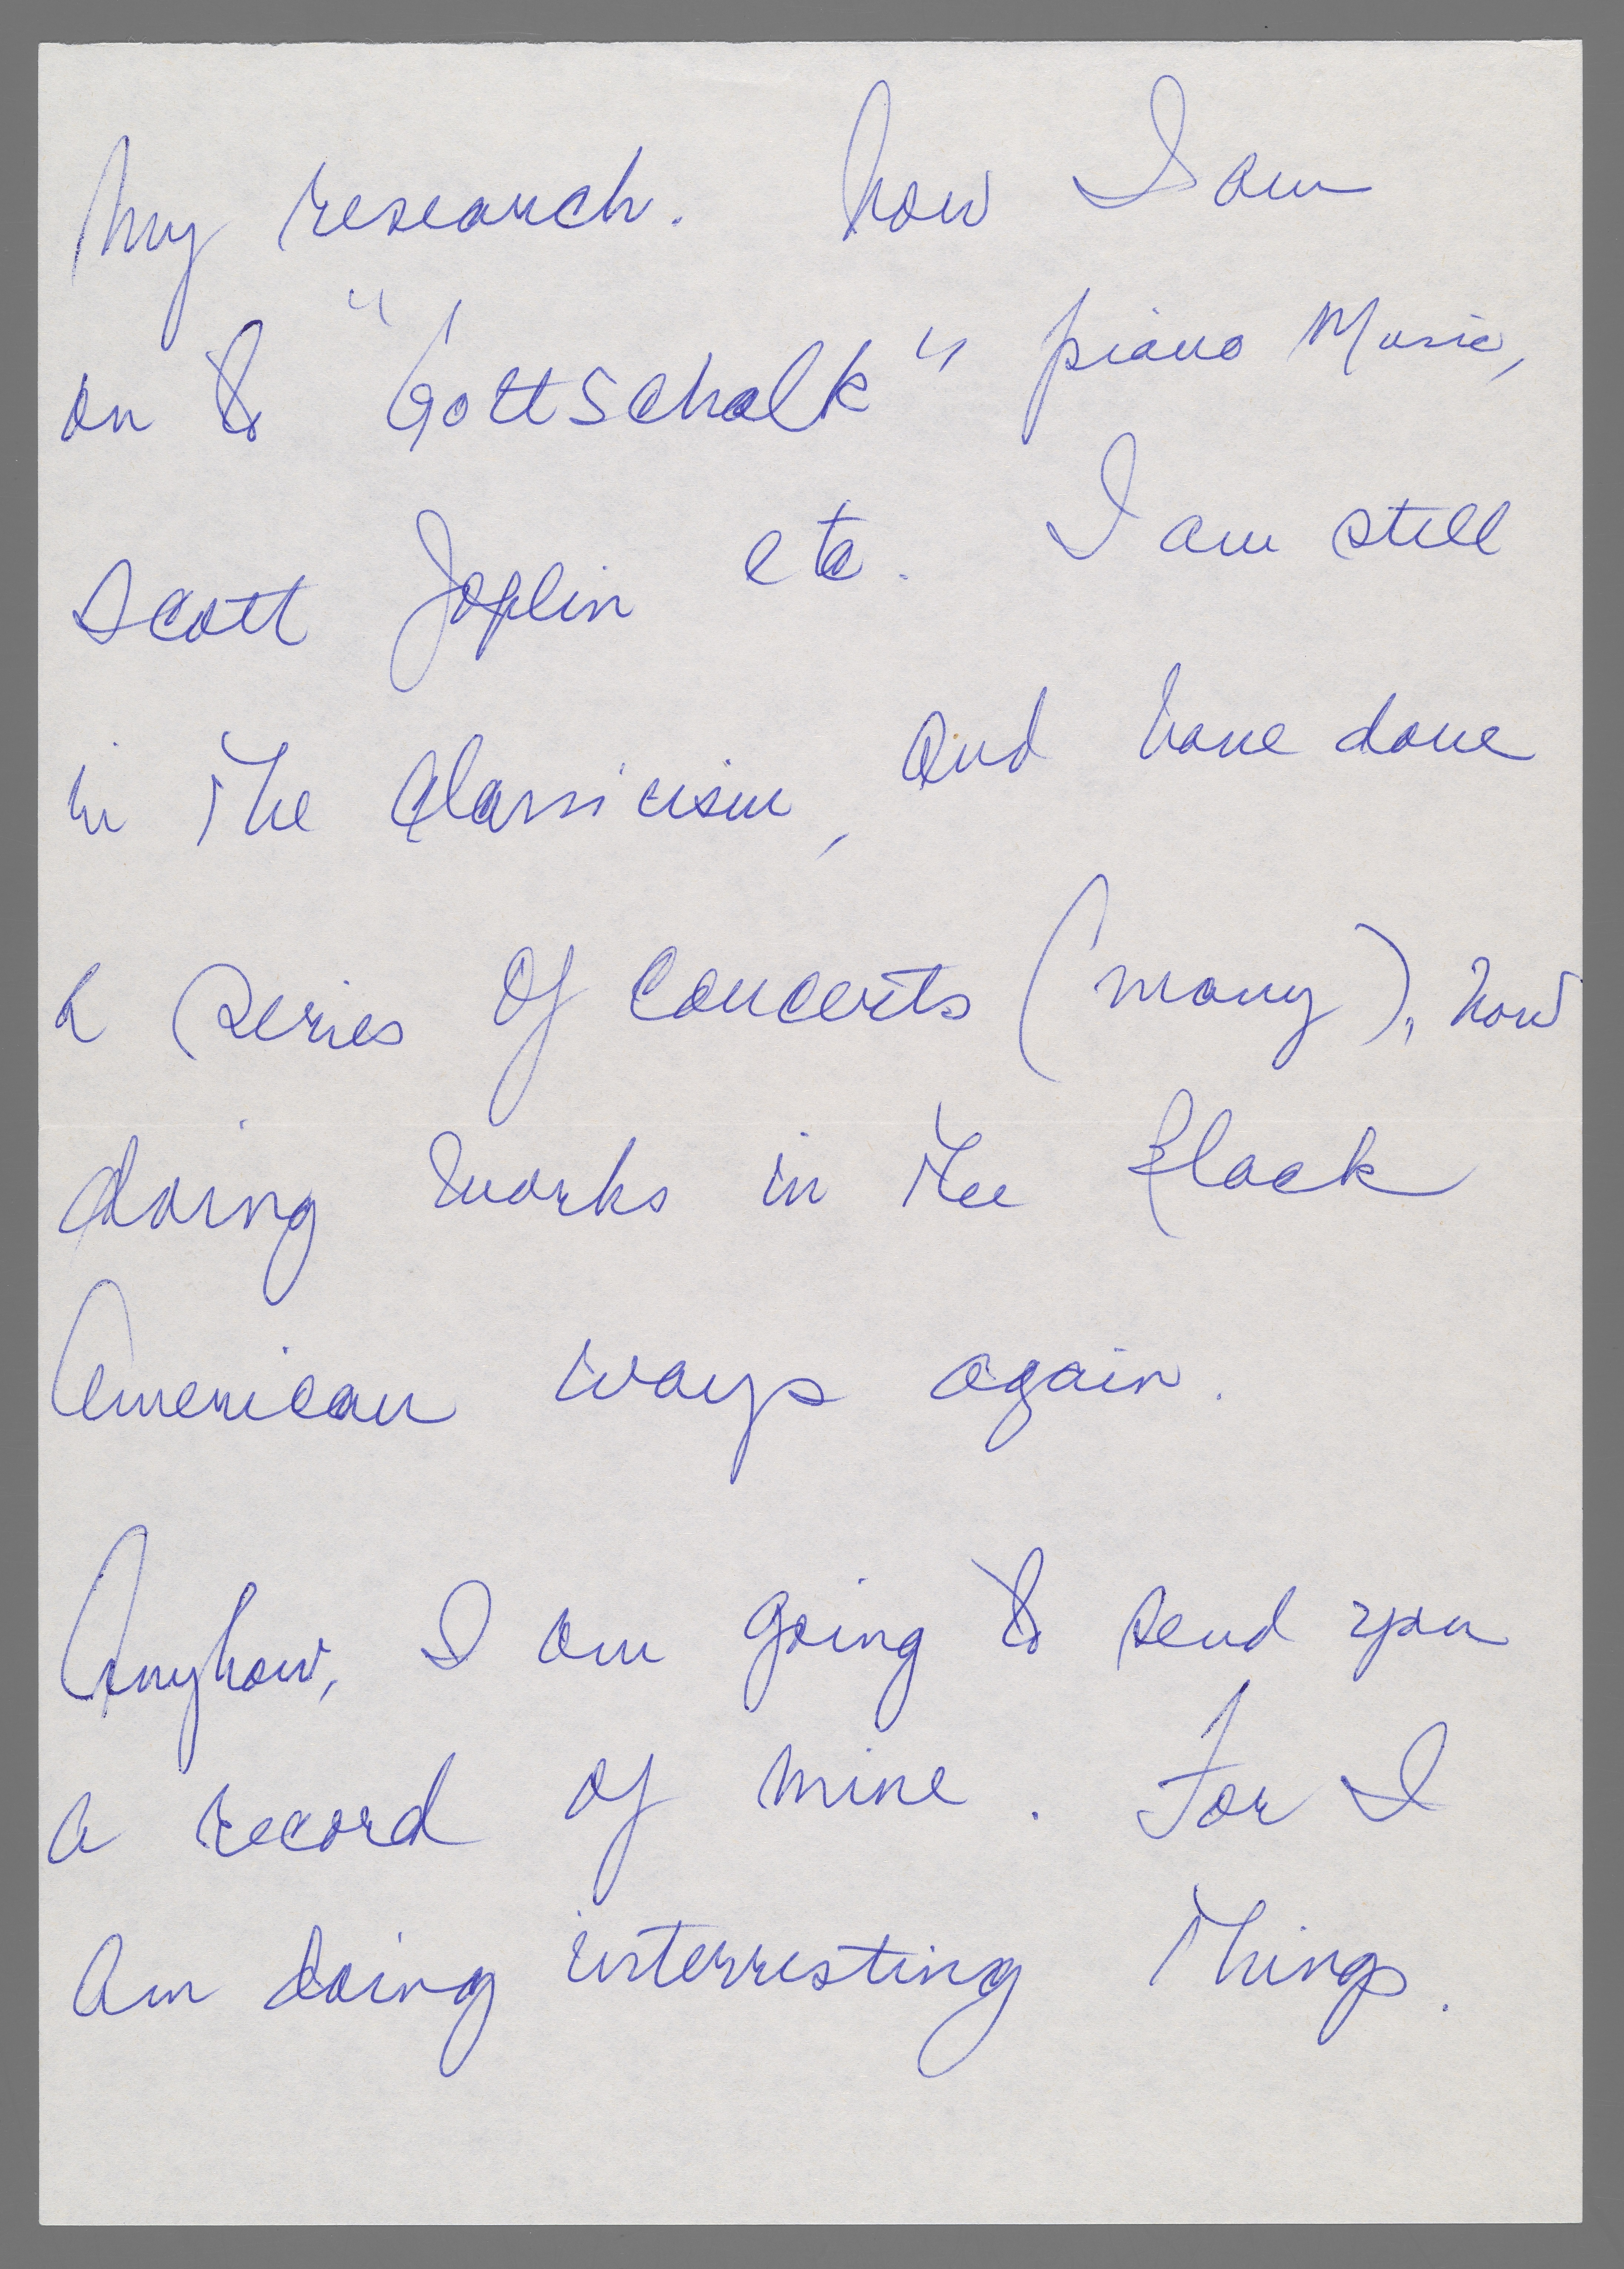 My research. Now I am
on to "Gottschalk" piano Music,
Scott Joplin etc. I am still
in the Classicism, and have done
a series of concerts (many), now
doing works in the Black
American ways again.
Anyhow, I am going to send you
a record of mine. For I
am doing interresting things.